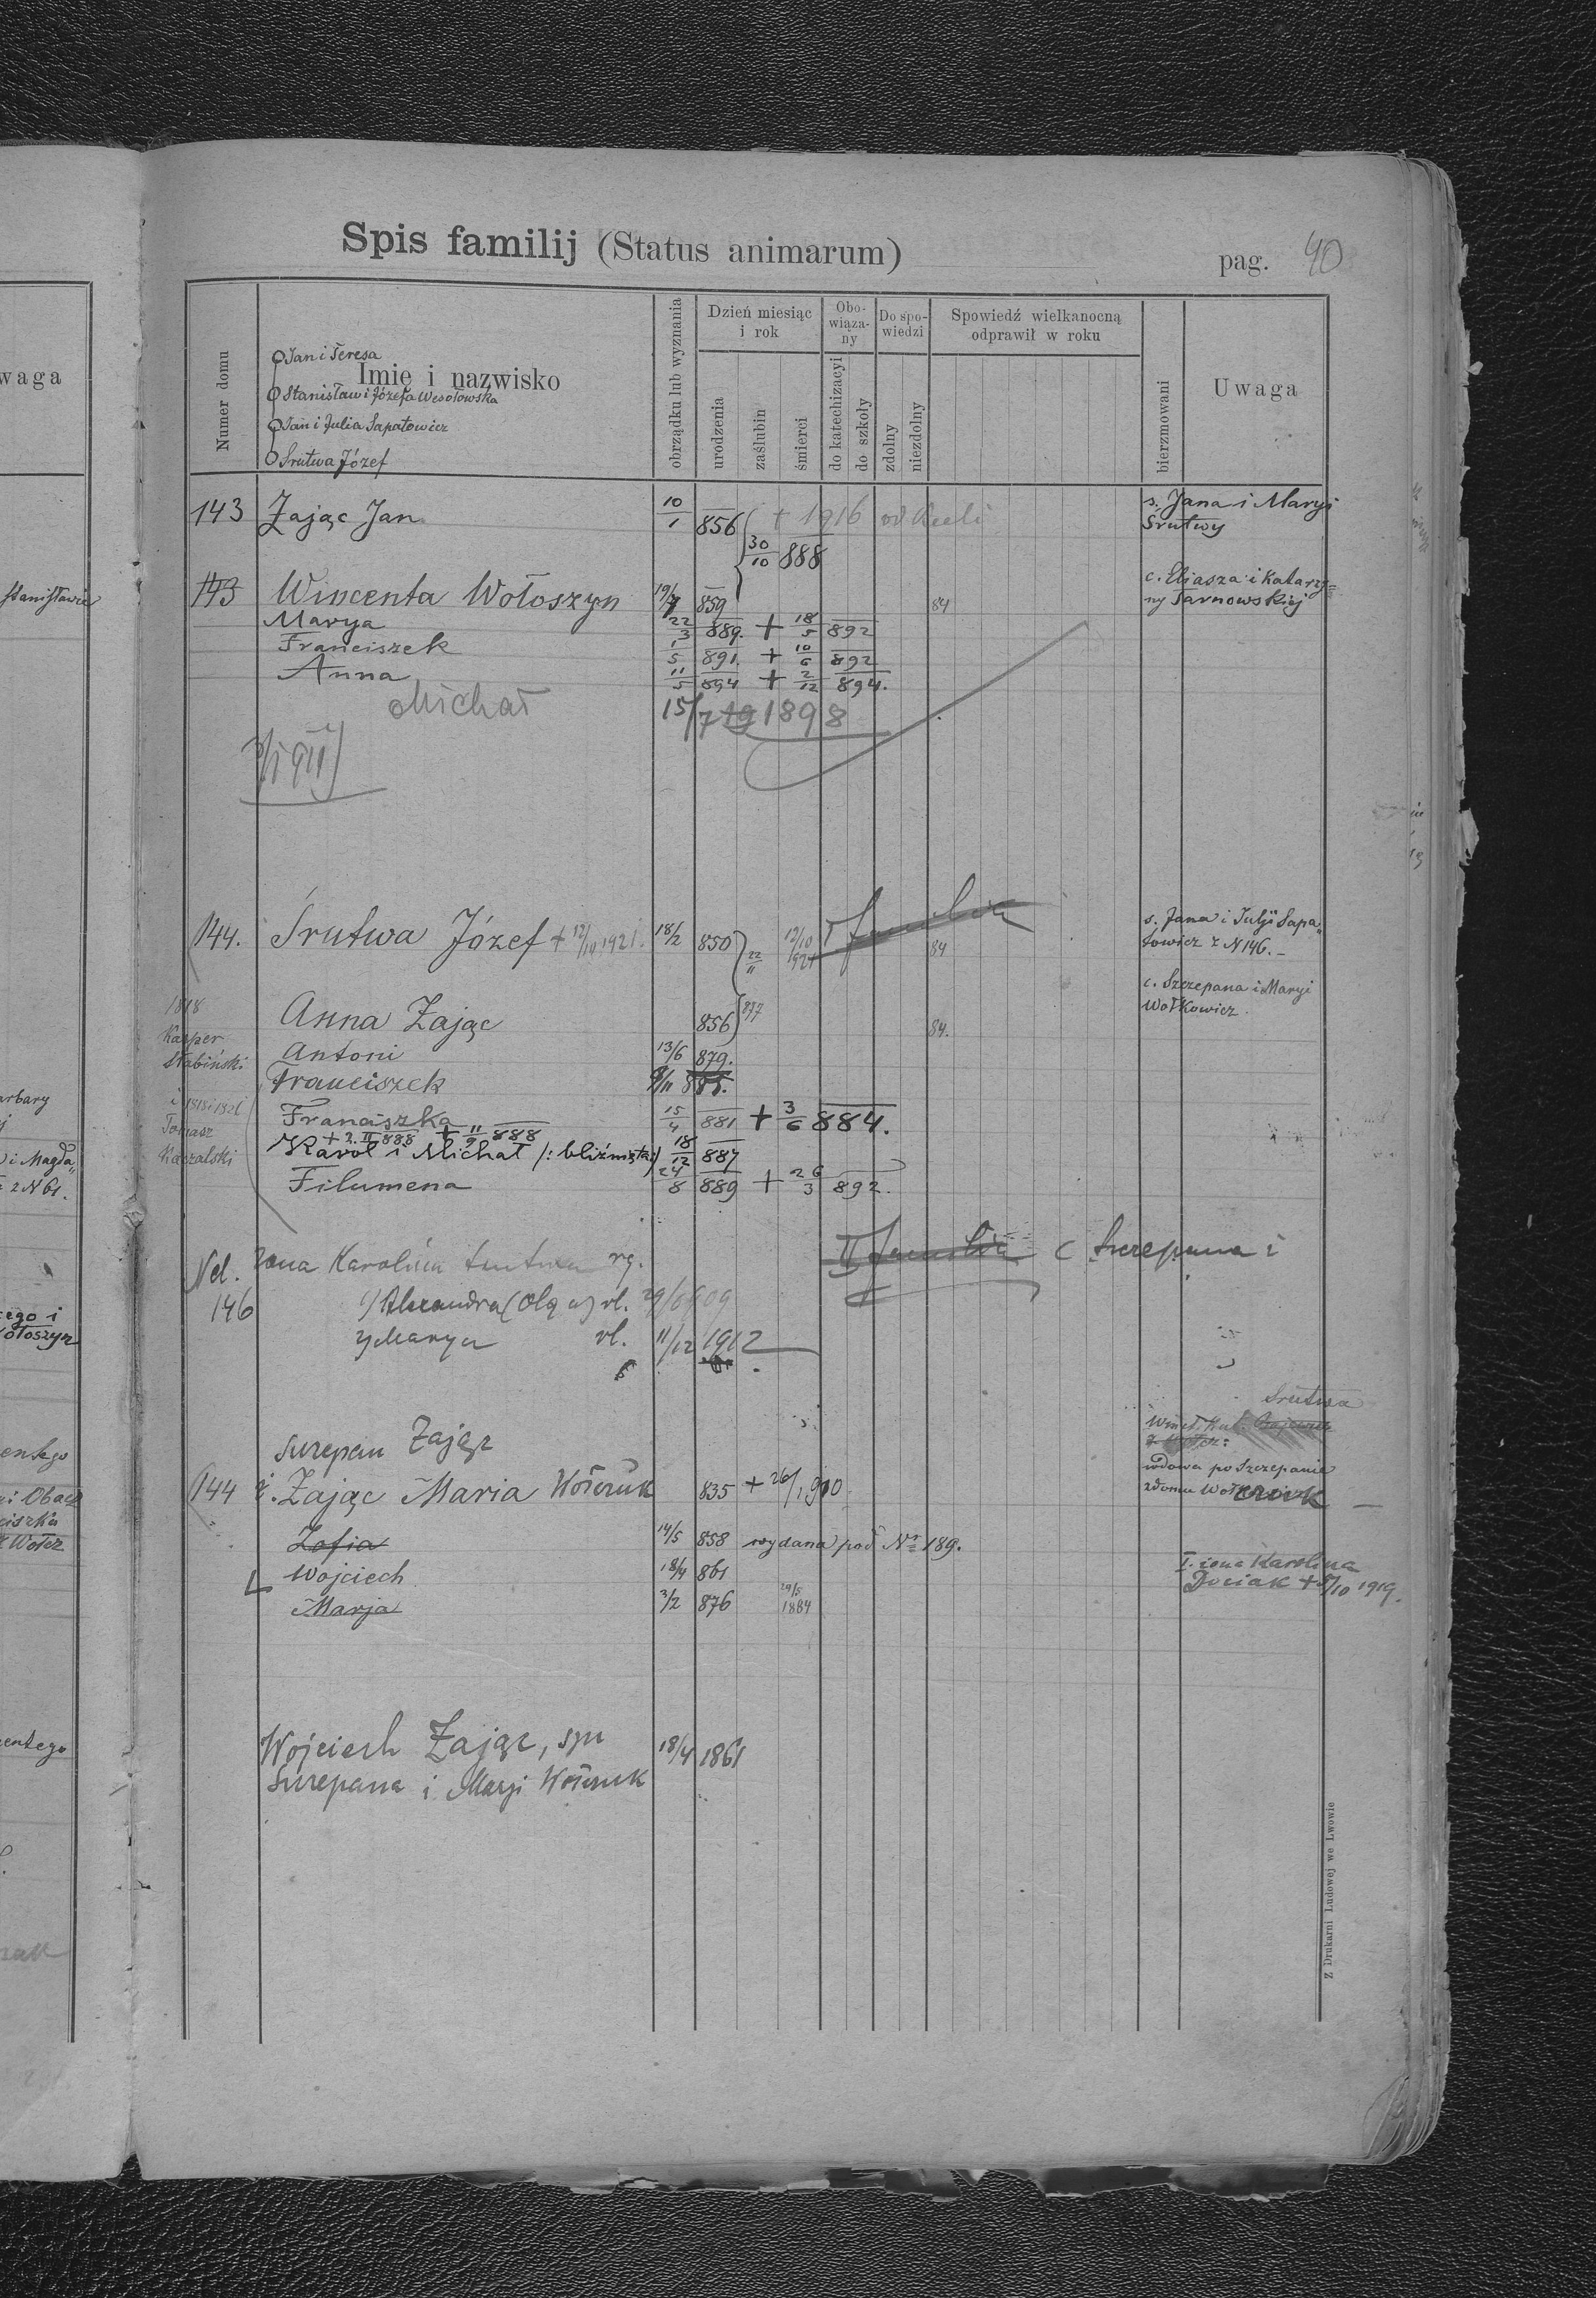 Spis familij (Status animarum)
pag. 40
Numer domu
Imię i nazwisko
obrządku lub wyznania
Dzień miesiąc i rok
urodzenia
zaślubin
śmierci
Obowiązany
do katechizacyi
do szkoły
Do spowiedzi
zdolny
niezdolny
Spowiedź wielkanocną odprawił w roku
bierzmowani
Uwaga
Jan i Teresa
Stanisław i Józefa Wesołowska
Jan i Julia Sapatowicz
Śrutwa Józef
143 Zając Jan 10/1 856 + 1916 od s. Jana i Maryi Śrutwy
30/10 888
143 Wincenta Wołoszyn 19/7 859 84 c. Eliasza i Katarzyny Tarnowskiej
Marya 22/3 889. + 18/5 892
Franciszek 1/5 891. + 10/6 892
Anna 11/5 894 + 2/12 894.
Michał 15/7 19 1898
144. Śrutwa Józef + 12/10 1921. 18/2 850 22/11 12/10 1921 84 s. Jana i Julji Sapatowicz z N 146. –
Anna Zając 856 877 84. c. Szczepana i Maryi Wołkowicz
1818
Kasper
Słabiński
i 1818 i 1821
Tomasz
Kaczalski
Antoni 13/6 879.
Franciszek 9/11 885.
Franciszka 15/4 881 + 3/6 884.
+ 2. II 888 + 11/9 888
Karol i Michał /: bliźnięta:/ 18/12 887
Filumena 24/8 889 + 26/3 892.
II familia c Szczepana i
Nel. żona Karolina rg.
146 1) Alexandra (Olga) rl. 29/6 909
2) Marya rl. 11/12 1912
Szczepan Zając
Śrutwa
144 ż. Zając Maria Wołczuk 835 + 26/1 910 wdowa po Szczepanie z domu
Zofia 14/5 858 wydana pod Nr 189.
Wojciech 18/4 861 I. żona Karolina Duciak + 5/10 1919.
Marja 3/2 876 29/5 1884
Wojciech Zając, syn 18/4 1861
Szczepana i Maryi Wołczuk
Z Drukarni Ludowej we Lwowie